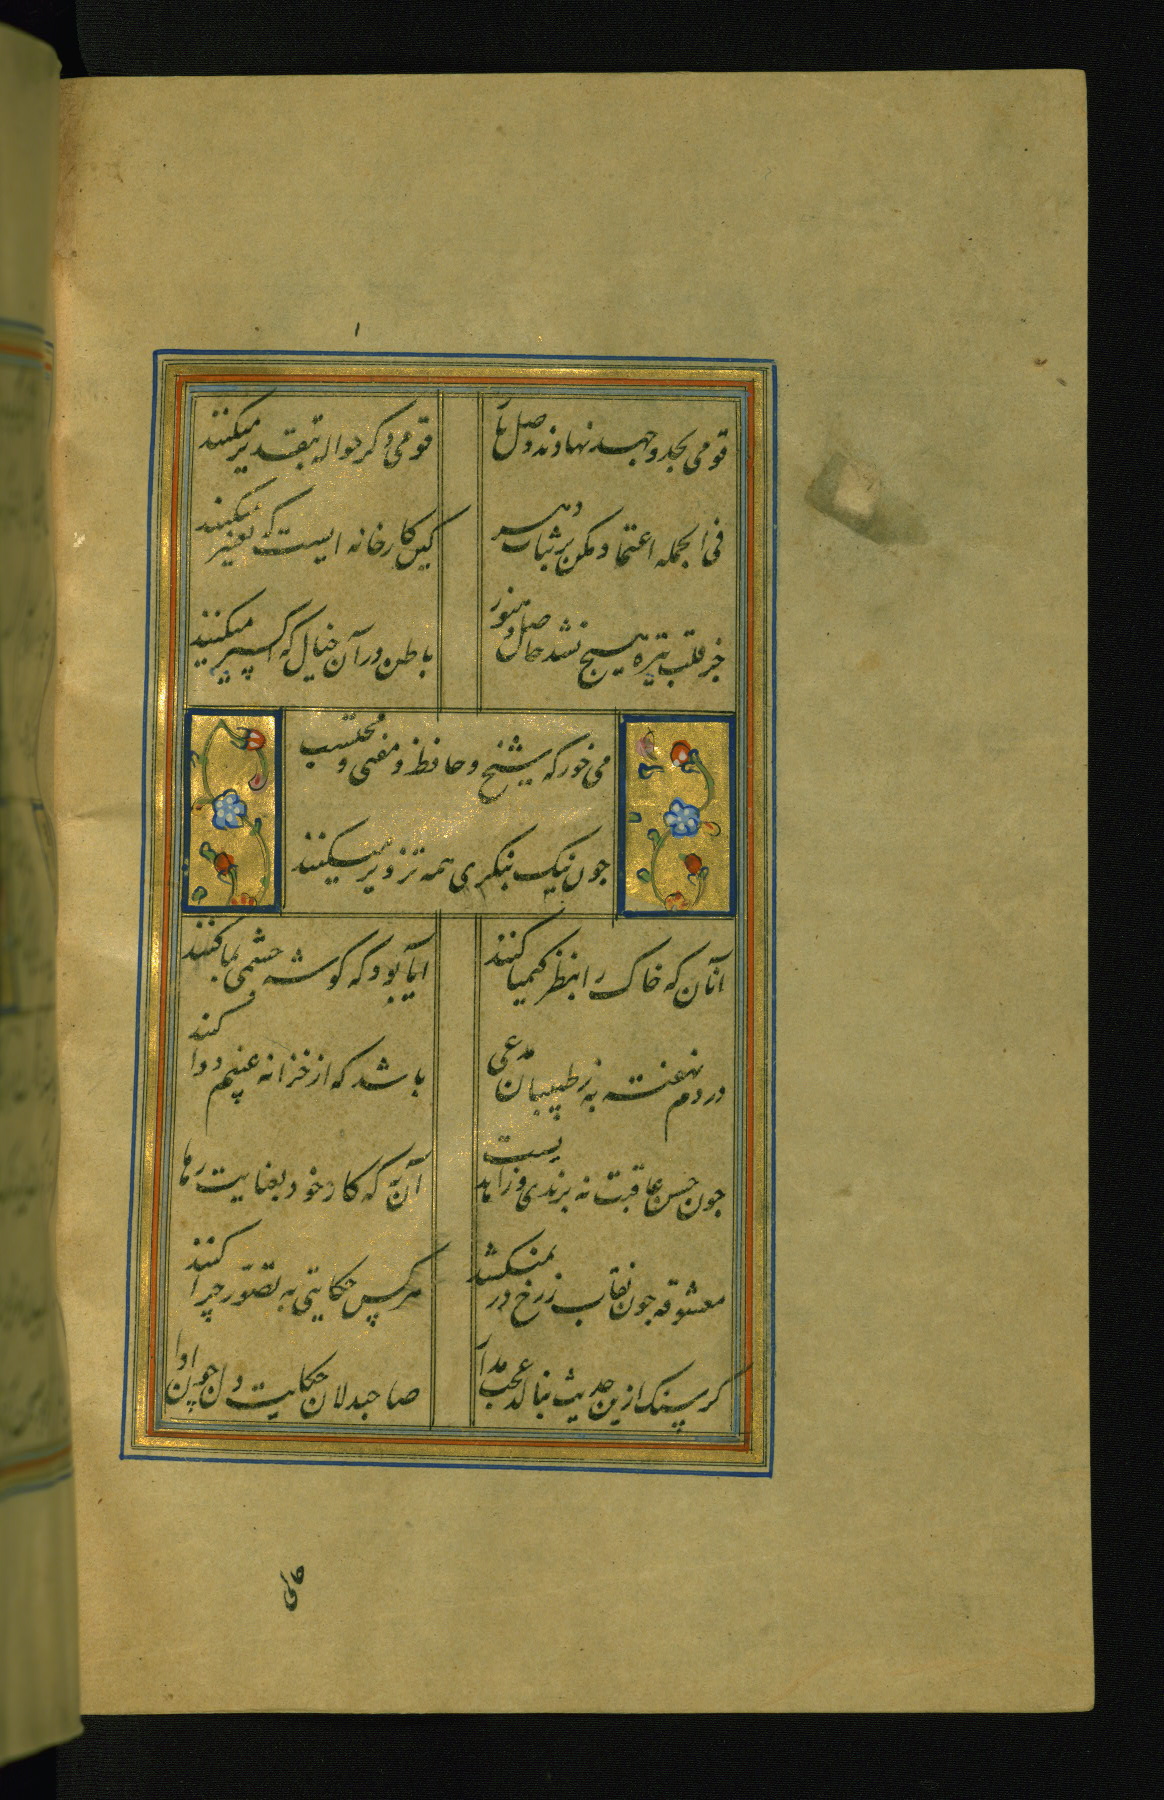 قومی بجد و جهد نهادند وصل یار
قومی دگر حواله بتقدیر میکنند
فی الجمله اعتماد مکن بر ثبات دهر
کین کارخانه ایست که تغییر میکنند
جز قلب تیره هیچ نشد حاصل و هنوز
باطن در آن خیال که اکسیر میکنند
می خور که شیخ و حافظ و مفتی و محتسب
چون نیک بنگری همه تزویر میکنند
آنان که خاک را بنظر کیمیا کنند
آیا بود که گوشه چشمی بما کنند
دردم نهفته به ز طبیبان مدعی
باشد که از خزانه غیبم دوا کنند
چون حسن عاقبت نه برندی و زاهدیست
آن به که کار خود بعنایت رها
معشوقه چون نقاب ز رخ در نمیکشد
هر کس حکایتی به تصور چرا کنند
گر سنگ ازین حدیث بنالد عجب مدار
صاحبدلان حکایت دل چون ادا